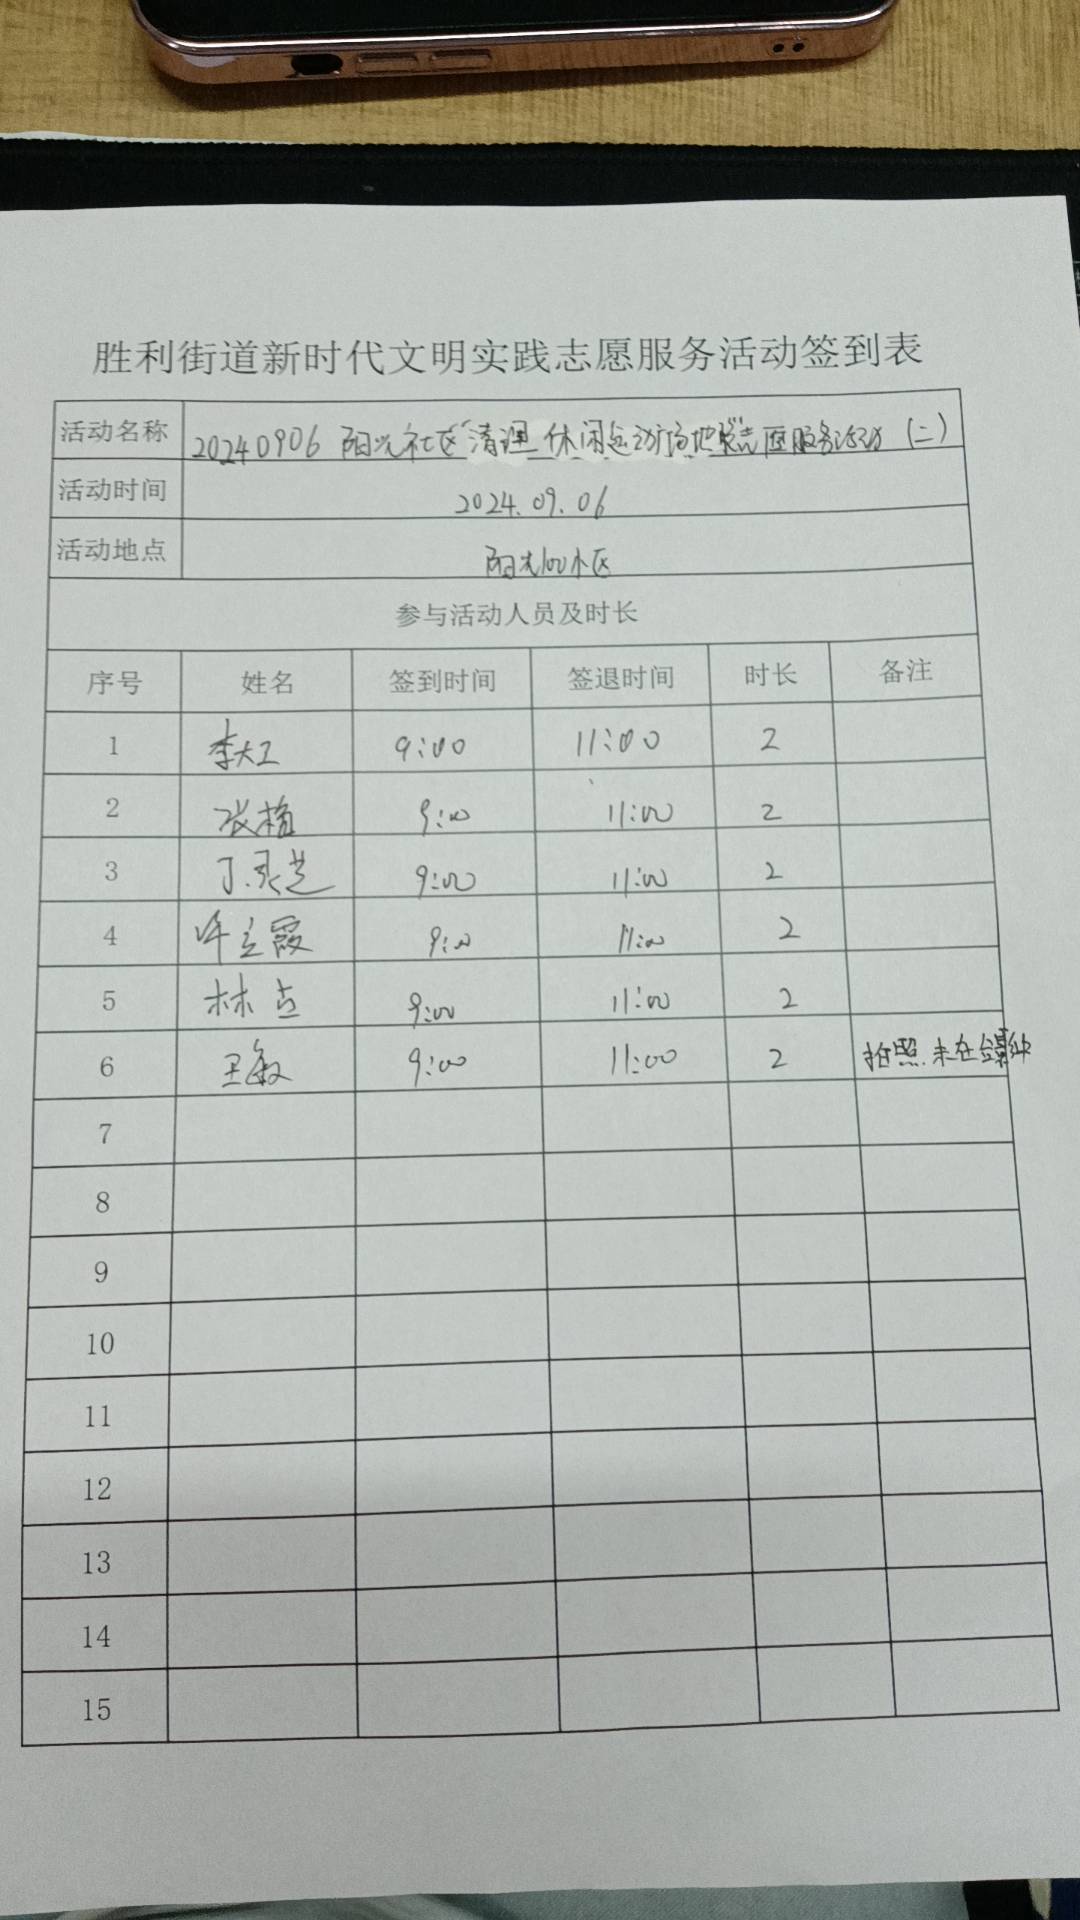 胜利街道新时代文明实践志愿服务活动签到表
活动名称 20240906 阳光社区“清理休闲运动场地”志愿服务活动（二）
活动时间 2024.09.06
活动地点 阳光100小区
参与活动人员及时长
序号 姓名 签到时间 签退时间 时长 备注
1 李大工 9:00 11:00 2
2 张梅 9:00 11:00 2
3 丁灵芝 9:00 11:00 2
4 许立霞 9:00 11:00 2
5 林立 9:00 11:00 2
6 王敏 9:00 11:00 2 拍照.未在合影中
7
8
9
10
11
12
13
14
15